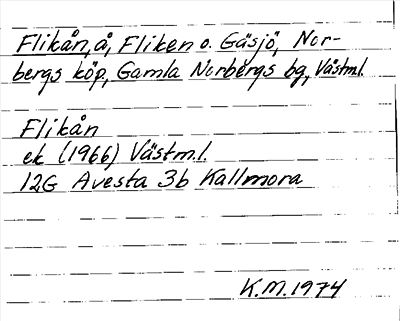 Flikån, å, Fliken o. Gäsjö, Nor-
bergs köp, Gamla Norbergs bg, Västml.
Flikån
ek (1966) Västm.l.
12G Avesta 3b Kallmora
K.M. 1974